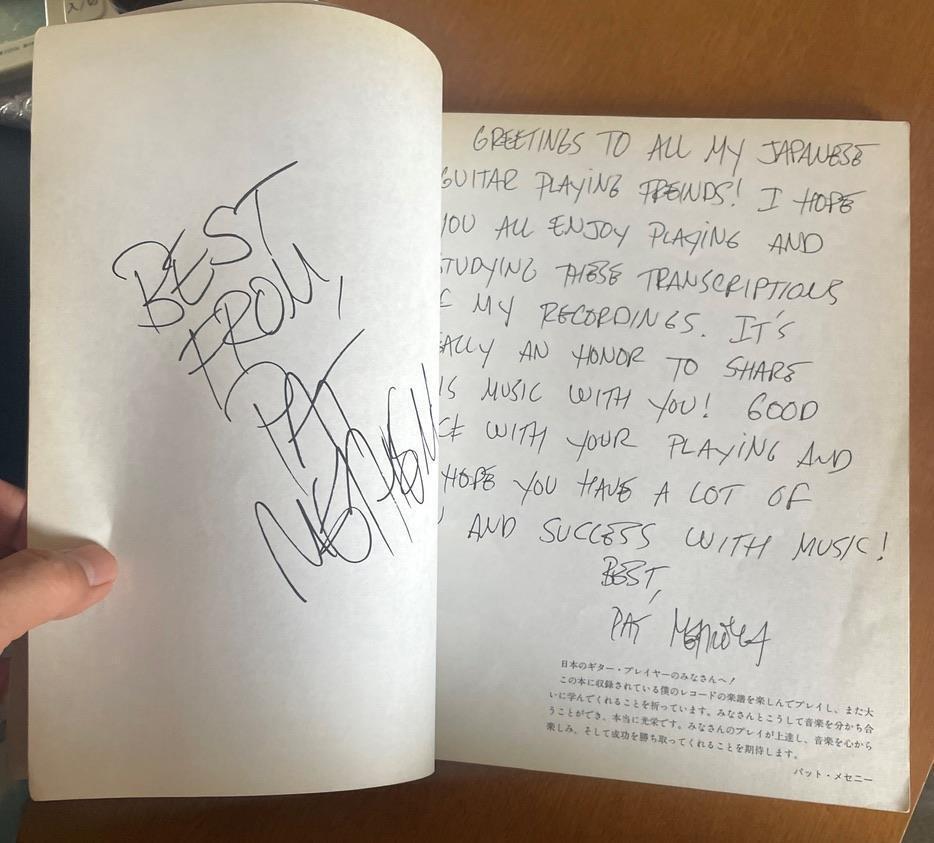 BEST
FROM,
PAT
METHEN
GREETINGS TO ALL MY JAPANESE
GUITAR PLAYING FREINDS! I HOPE
YOU ALL ENJOY PLAYING AND
TUDYING THESE TRANSCRIPTIONS
MY RECORDINGS. IT'S
EALLY AN HONOR TO SHARE
IS MUSIC WITH YOU! GOOD
CK WITH YOUR PLAYING AND
HOPE YOU HAVE A LOT OF
AND SUCCESS WITH MUSIC!
BEST,
PAT METHENY
日本のギター・プレイヤーのみなさんへ!
この本に収録されている僕のレコードの楽譜を楽しんでプレイし、また大
いに学んでくれることを祈っています。みなさんとこうして音楽を分かち合
うことができ、本当に光栄です。みなさんのプレイが上達し、音楽を心から
楽しみ、そして成功を勝ち取ってくれることを期待します。
パット・メセニー